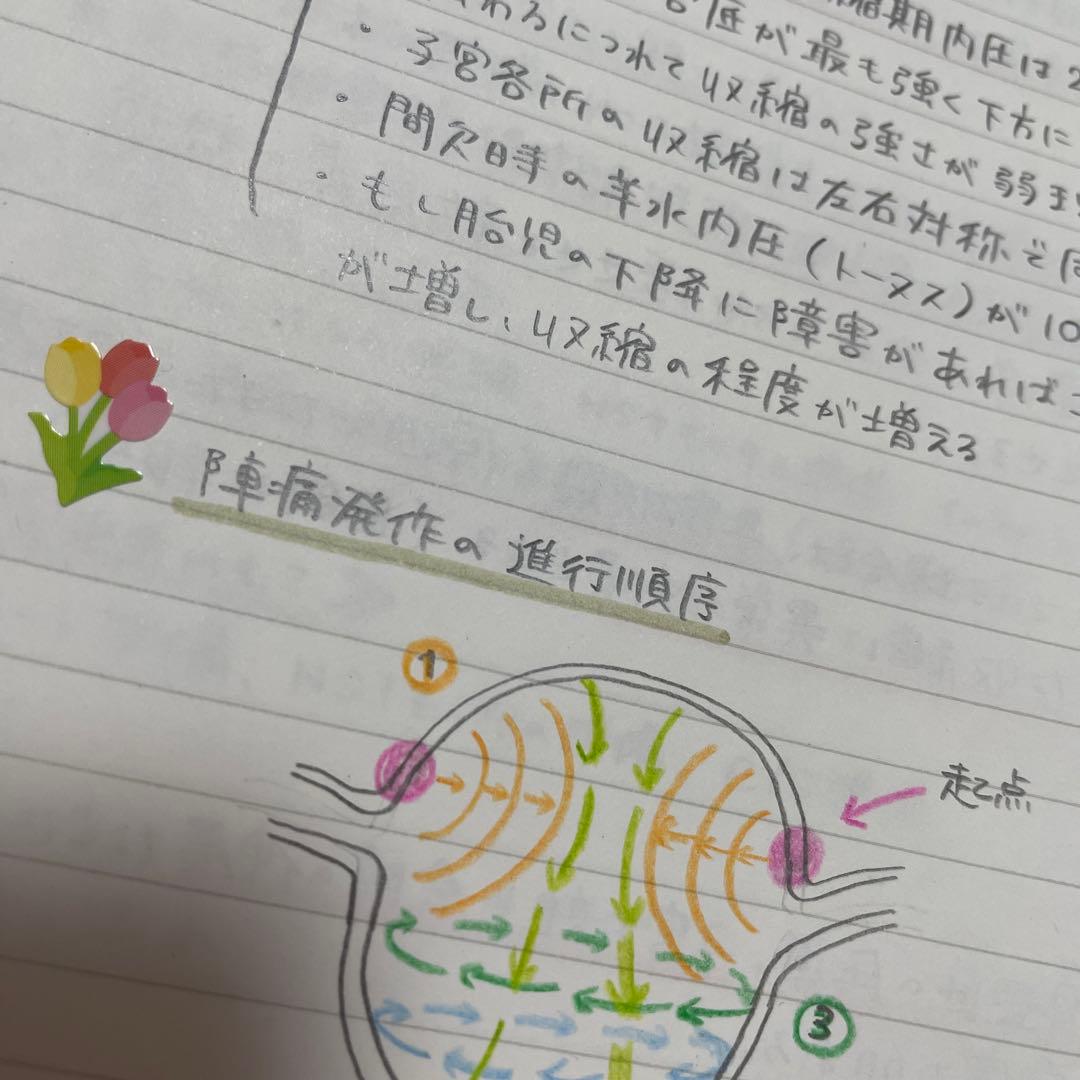 縮期内圧は2
圧が最も強く下方に
わるにつれて収縮の強さが弱ま
・子宮各所の収縮は左右対称で
・間欠時の羊水内圧(トーヌス)が10
・もし胎児の下降に障害があれば
が増し、収縮の程度が増える
陣痛発作の進行順序
①
起点
③